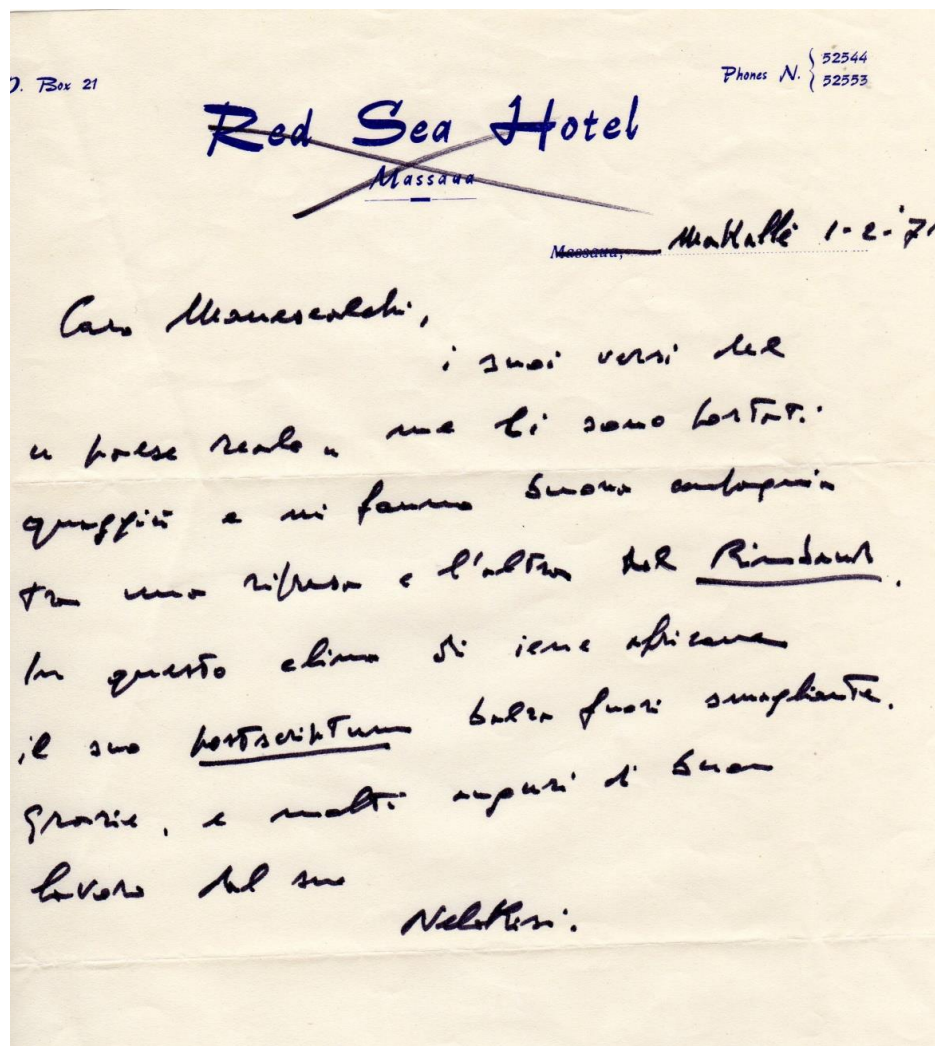 O. Box 21
Phones N. { 52544
52553
Red Sea Hotel
Massaua
Massaua, Makallè 1-2-'71
Caro Manescalchi,
i suoi versi del
"paese reale" me li sono portati
quaggiù e mi fanno buona compagnia
tra una ripresa e l'altra del Rimbaud.
In questo clima di iene africane
il suo postscriptum balza fuori smagliante.
Grazie, e molti auguri di buon
lavoro dal suo
Nelo Risi.